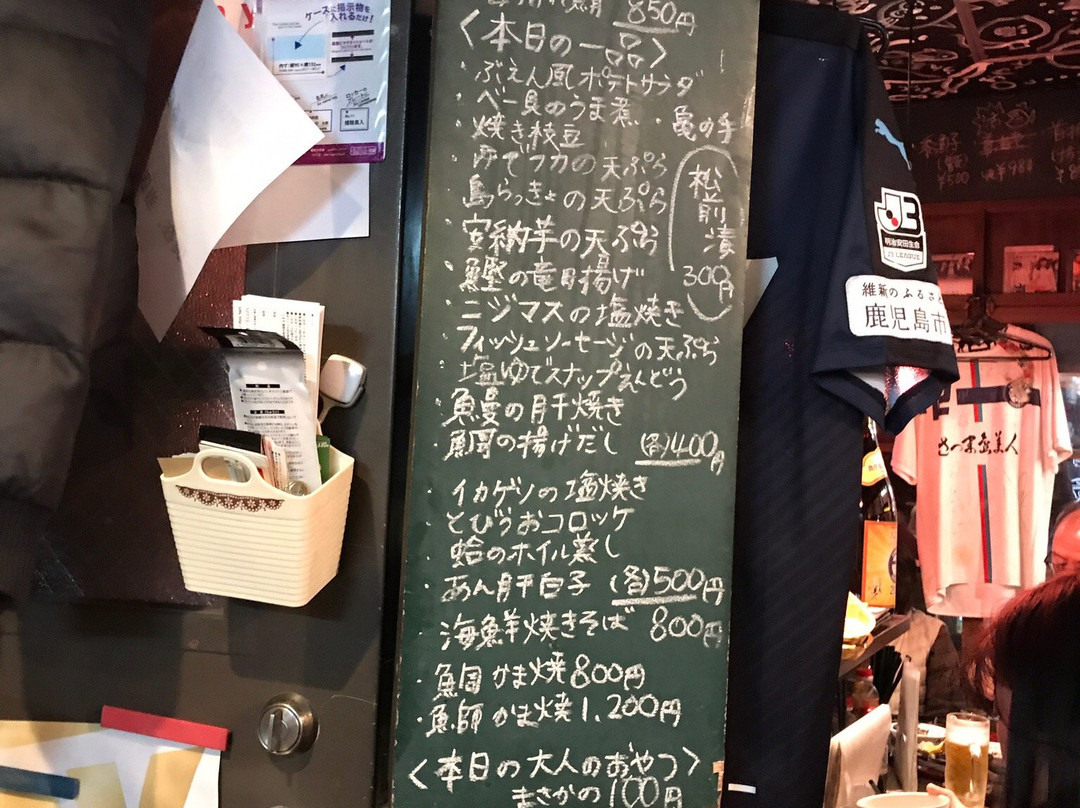 850円
〈本日の一品〉
・ぶえん風ポテトサラダ
・べー貝のうま煮・亀の手
・焼き枝豆
・ゆでフカの天ぷら
・島らっきょの天ぷら
・安納芋の天ぷら
・鰹の竜田揚げ
・ニジマスの塩焼き
・フィッシュソーセージの天ぷら
・塩ゆでスナップえんどう
・鰻の肝焼き
・鯛の揚げだし (各)400円
松前漬
300円
・イカゲソの塩焼き
・とびうおコロッケ
・蛤のホイル蒸し
・あん肝白子 (各)500円
・海鮮焼きそば 800円
・鯛かま焼 800円
・鰤かま焼 1,200円
〈本日の大人のおやつ〉
まさかの100円
ケースに指示物を
入れるだけ!
J3
明治安田生命
J3 LEAGUE
維新のふるさと
鹿児島市
さつま島美人